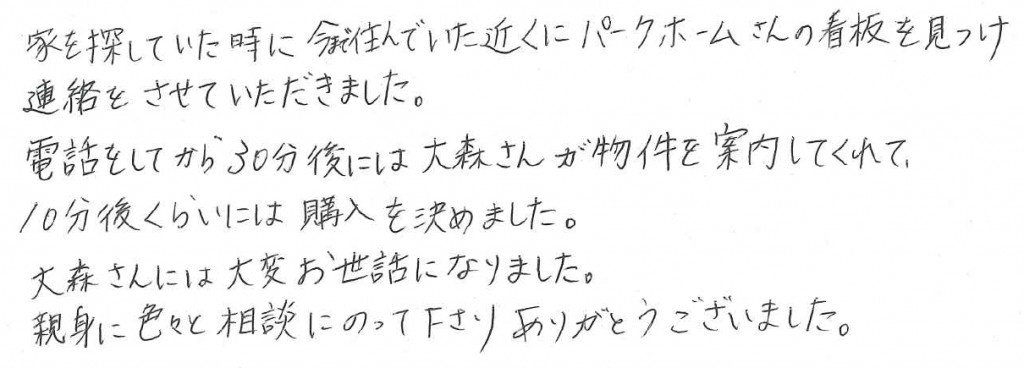 家を探していた時に 今まで住んでいた近くに パークホームさんの看板を見つけ
連絡をさせていただきました。
電話をしてから30分後には大森さんが物件を案内してくれて、
10分後くらいには購入を決めました。
大森さんには大変お世話になりました。
親身に色々と相談にのって下さり ありがとうございました。